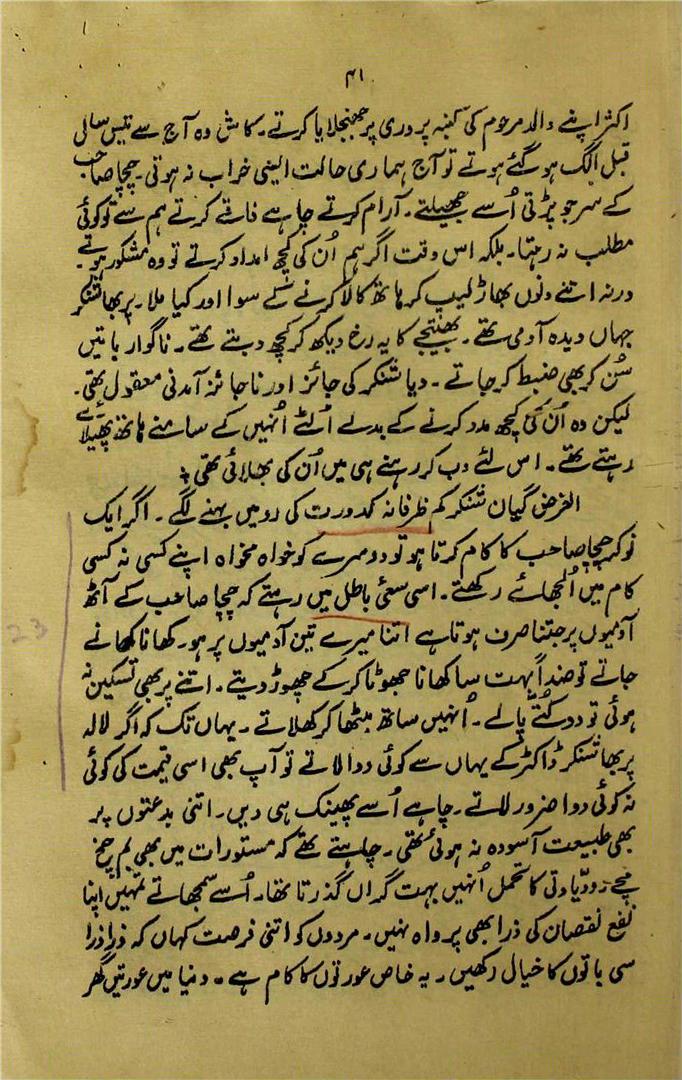 ۴۱
اکثر اپنے والد مرحوم کی کنبہ پروری پر جھنجلایا کرتے۔ کاش وہ آج سے تیس سال
قبل الگ ہو گئے ہوتے تو آج ہماری حالت ایسی خراب نہ ہوتی۔ چچا صاحب
کے سر جو پڑتی اُسے جھیلتے۔ آرام کرتے چاہے فاقے کرتے ہم سے تو کوئی
مطلب نہ رہتا۔ بلکہ اس وقت اگر ہم اُن کی کچھ امداد کرتے تو وہ مشکور ہوتے۔
ورنہ اتنے دنوں بھاڑ لیپ کر ہاتھ کالا کرنے کے سوا اور کیا ملا۔ پربھا شنکر
جہاں دیدہ آدمی تھے۔ بھتیجے کا یہ رخ دیکھ کر کچھ دبتے تھے۔ ناگوار باتیں
سُن کر بھی ضبط کر جاتے۔ دیا شنکر کی جائز اور ناجائز آمدنی معقول تھی۔
لیکن وہ اُن کی کچھ مدد کرنے کے بدلے اُلٹے اُنہیں کے سامنے ہاتھ پھیلائے
رہتے تھے۔ اس لئے دب کر رہنے ہی میں اُن کی بھلائی تھی ؛
الغرض گیان شنکر کم ظرفانہ کدورت کی رو میں بہنے لگے۔ اگر ایک
نوکر چچا صاحب کا کام کرتا ہو تو دوسرے کو خواہ مخواہ اپنے کسی نہ کسی
کام میں اُلجھائے رکھتے۔ اسی سعیٔ باطل میں رہتے کہ چچا صاحب کے آٹھ
آدمیوں پر جتنا صرف ہوتا ہے اتنا میرے تین آدمیوں پر ہو۔ کھانا کھانے
جاتے تو ضداً بہت سا کھانا جھوٹا کر کے چھوڑ دیتے۔ اتنے پر بھی تسکین نہ
ہوئی تو دو کُتے پالے۔ اُنہیں ساتھ بیٹھا کر کھلاتے۔ یہاں تک کہ اگر لالہ
پربھا شنکر ڈاکٹر کے یہاں سے کوئی دوا لاتے تو آپ بھی اسی قیمت کی کوئی
نہ کوئی دوا ضرور لاتے۔ چاہے اُسے پھینک ہی دیں۔ اتنی بدعتوں پر
بھی طبیعت آسودہ نہ ہوئی تھی۔ چاہتے تھے کہ مستورات میں بھی بم چخ
مچے۔ ودّیاوتی کا تحمل اُنہیں بہت گراں گذرتا تھا۔ اُسے سمجھاتے تمہیں اپنا
نفع نقصان کی ذرا بھی پرواہ نہیں۔ مردوں کو اتنی فرصت کہاں کہ ذرا ذرا
سی باتوں کا خیال رکھیں۔ یہ خاص عورتوں کا کام ہے۔ دنیا میں عورتیں گھر
23